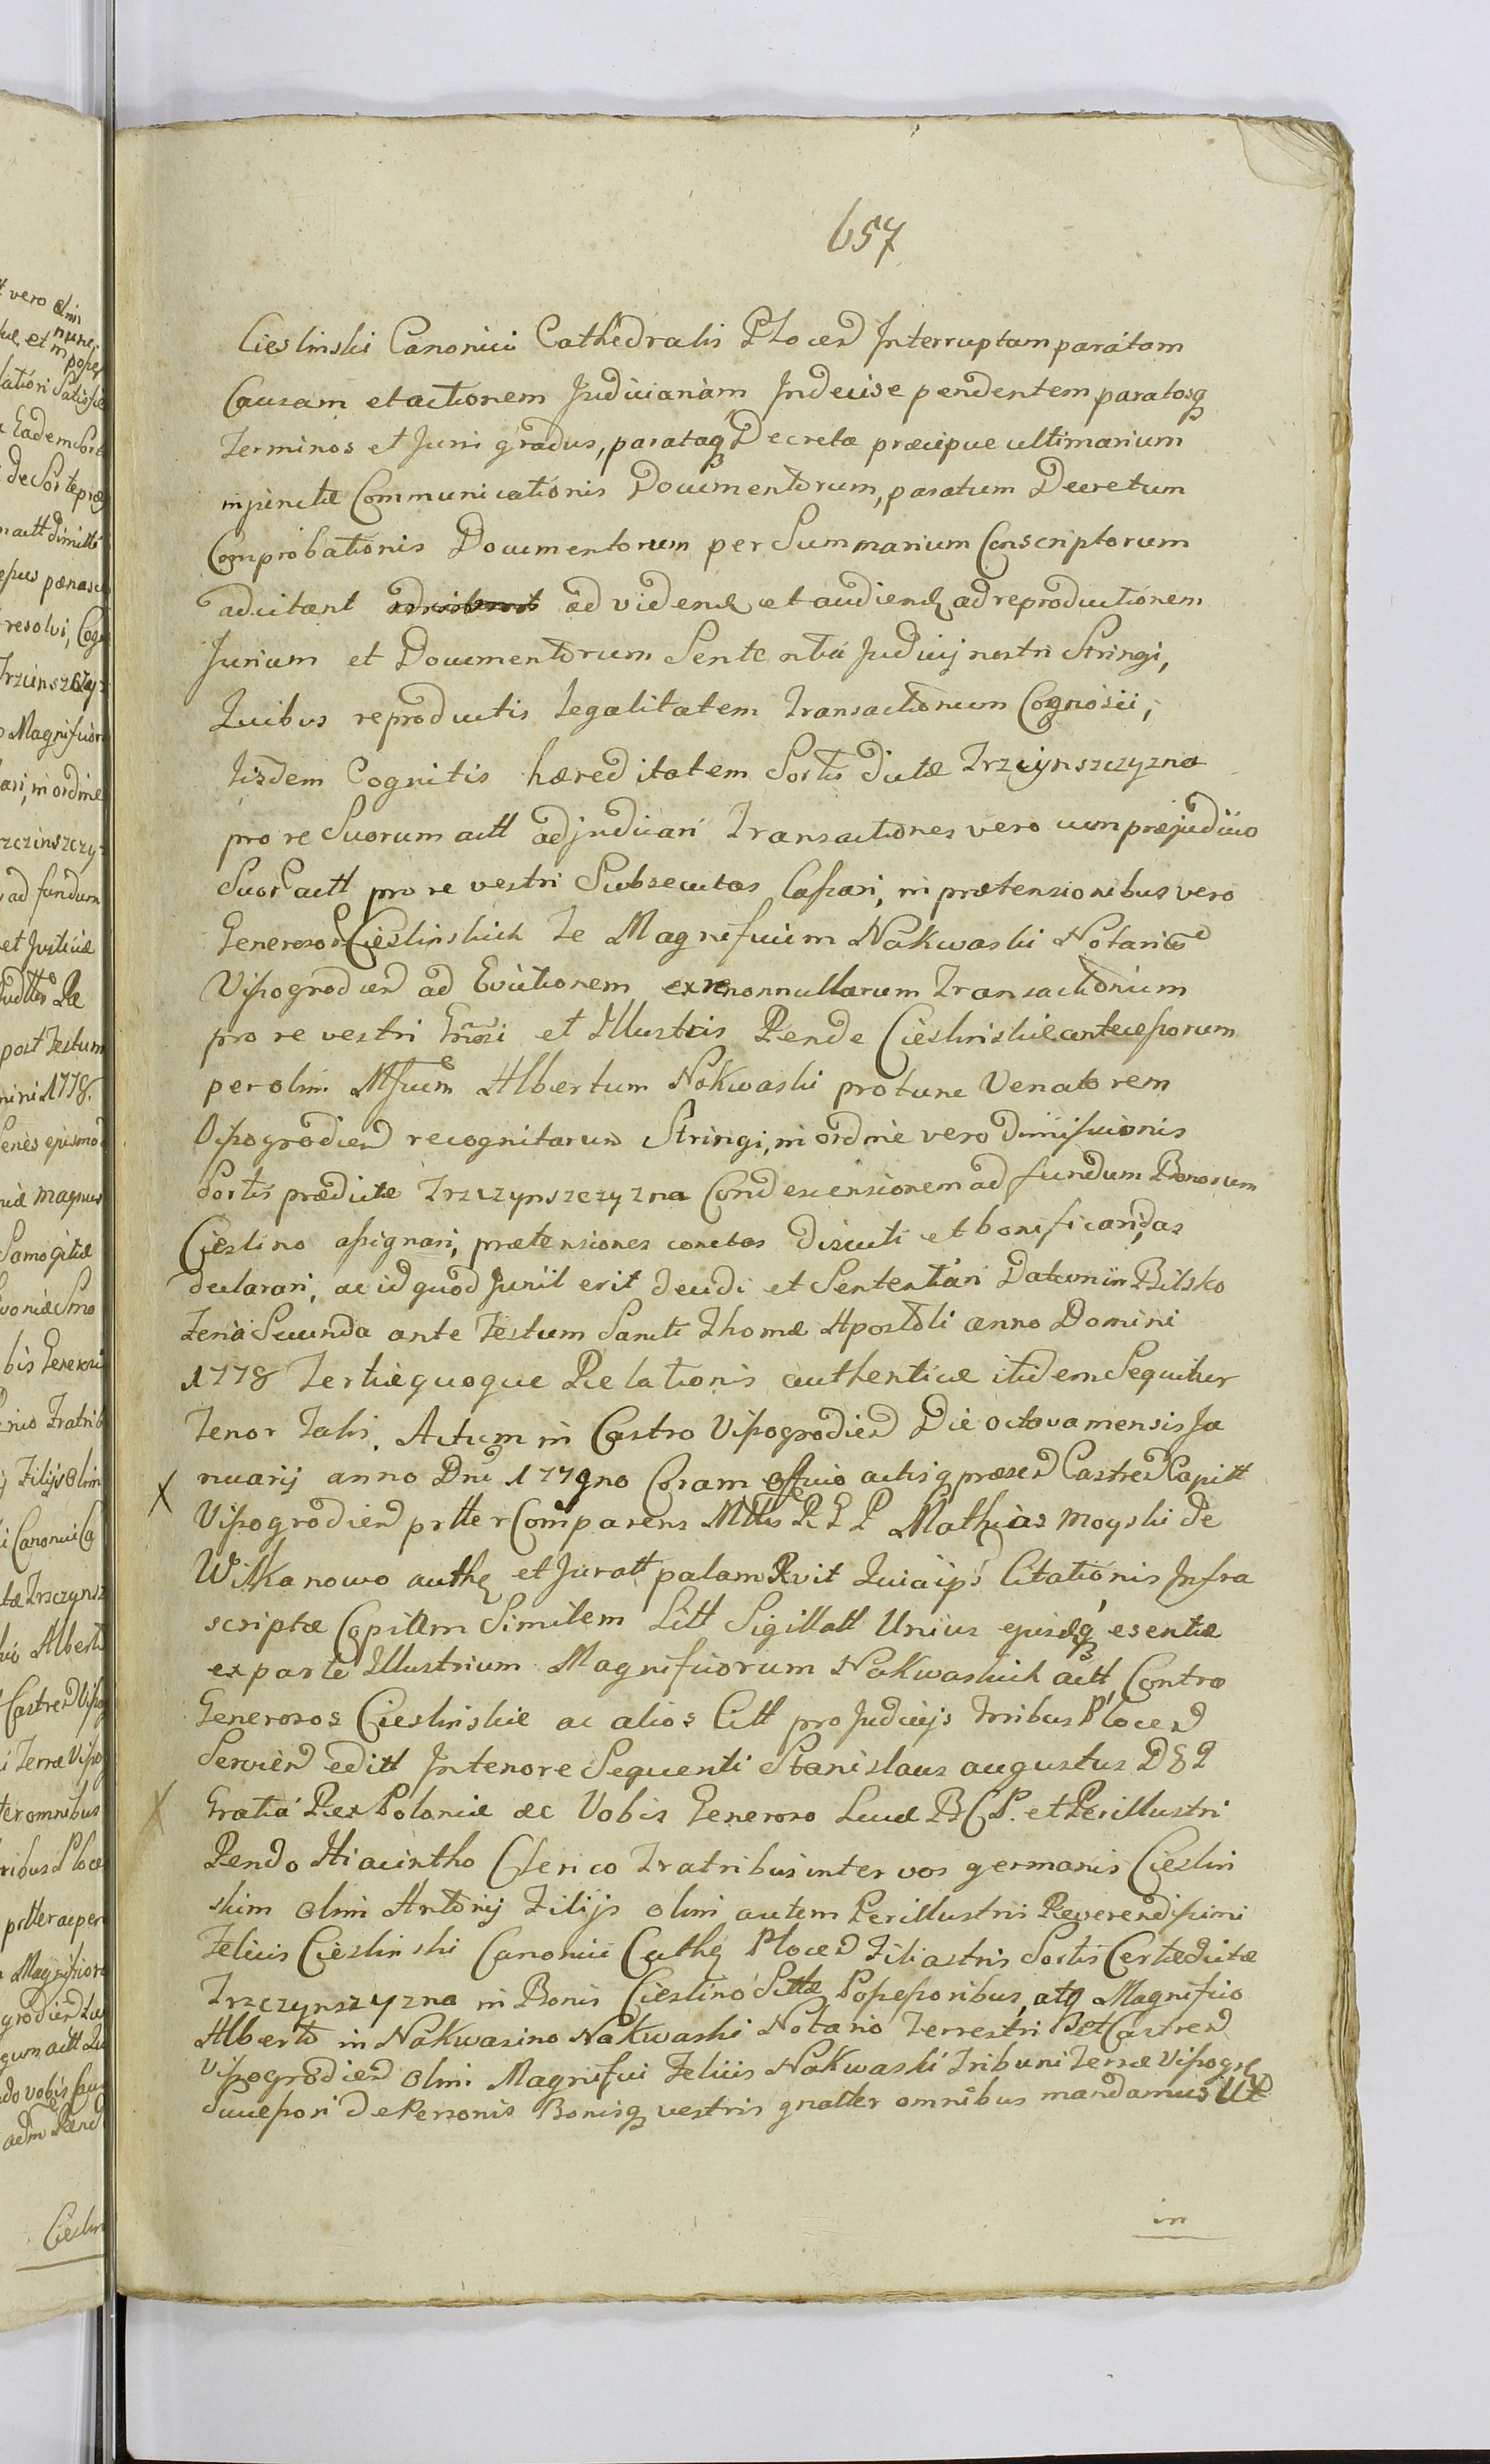 657
Cieslinski Canonici Cathedralis Plocen Interruptam paratam
Causam et actionem Judiciariam Indecise pendentem paratosq
Terminos et Juris gradus, parataq Decreta præcipue ultimarium
injunctæ Communicationis Documentorum, paratum Decretum
Comprobationis Documentorum per Summarium Conscriptorum
adcitant ad vidend et audiend ad reproductionem
Jurium et Documentorum Sententia Judicij nostri Stringi,
Quibus reproductis Legalitatem Transactionum Cognosci,
Iisdem Cognitis hæreditatem Sortis dictæ Trzcynszczyzna
pro re Suorum actt adjudicari Transactiones vero cum præjudicio
Suor actt pro re vestri Subsecutas Cassari, in prætensionibus vero
Generosor Cieslinskich Te Magnificum Nakwaski Notarium
Vissogrodien ad Evictionem ex nonnullarum Transactionum
pro re vestri Gnrosi et Illustris Rende Cieslinskie antecessorum
per olim Mfcum Albertum Nakwaski pro tunc Venatorem
Vissogrodien recognitarum Stringi, in ordine vero dimissionis
Sortis prædictæ Trzczynszczyzna Condescensionem ad fundum Bonorum
Cieslino assignari, prætensiones cunctas discuti et bonificandas
declarari, ac id quod Juris erit decidi et Sententiari Datum in Bilsko
Feria Secunda ante Festum Sancti Thomæ Apostoli anno Domini
1778 Tertiæ quoque Relationis authenticæ itidem Sequitur
Tenor Talis. Actum in Castro Vissogrodien Die octava mensis Ja
nuarij anno Dni 1779no Coram officio actisq præsen Castren Capitt
Vissogrodien prtter Comparens Mttis R G P Mathias Moyski de
Wilkanowo auth et Juratt palam Rvit Quia ips Citationis Infra
scriptæ Copiam Similem Litt Sigillatt Unius ejusdq esentiæ
ex parte Illustrium Magnificorum Nakwaskich actt Contra
Generosos Cieslinskie ac alios Citt pro Judicijs Trribus Plocen
Servien editt In tenore Sequenti Stanislaus augustus D 8 2
Gratia Rex Poloniæ &c Vobis Generoso Lucæ B C P. et Perillustri
Rendo Hiacintho Clerico Fratribus inter vos germanis Cieslin
skim olim Antonij Filijs olim autem Perillustris Reverendissimi
Felicis Cieslinski Canonici Cath Plocen Filiastris Sortis Certæ dictæ
Trzczynszyzna in Bonis Cieslino Sittæ Possessoribus, atq Magnifico
Alberto in Nakwasino Nakwaski Notario Terrestri et Castren
Vissogrodien olim Magnifici Felicis Nakwaski Tribuni Terræ Vissogr
Successori De Personis Bonisq vestris gnatter omnibus mandamus Ut
in